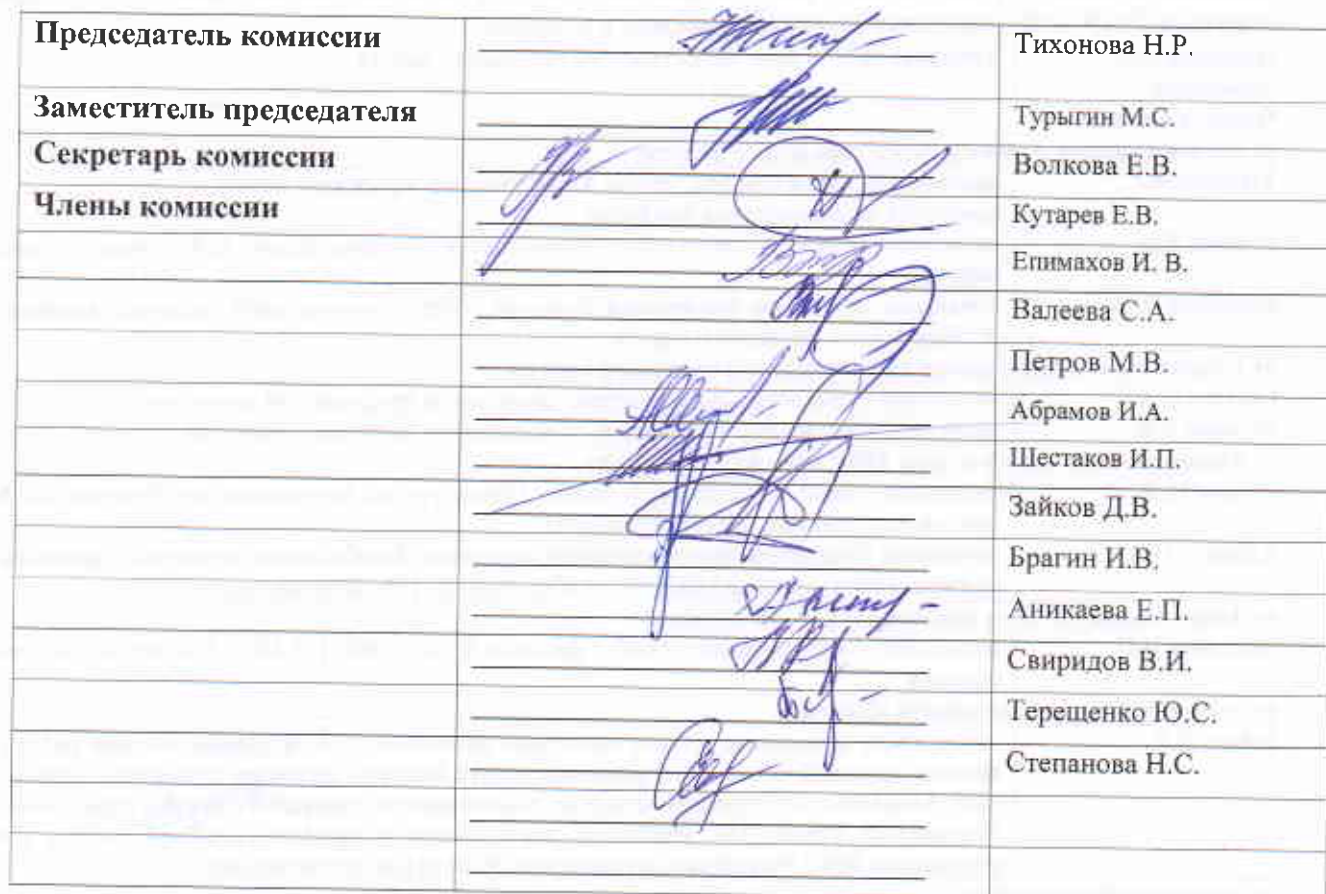 Председатель комиссии Тихонова Н.Р.
Заместитель председателя Турыгин М.С.
Секретарь комиссии Волкова Е.В.
Члены комиссии Кутарев Е.В.
Епимахов И. В.
Валеева С.А.
Петров М.В.
Абрамов И.А.
Шестаков И.П.
Зайков Д.В.
Брагин И.В.
Аникаева Е.П.
Свиридов В.И.
Терещенко Ю.С.
Степанова Н.С.